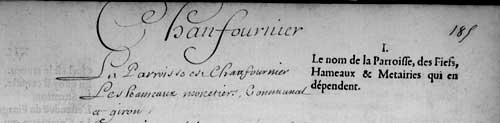 Chanfournier
185
La Parroisse est Chanfournier
Les hameaux monetiers, Communal
et giron,
I.
Le nom de la Parroisse, des Fiefs,
Hameaux & Metairies qui en
dépendent.